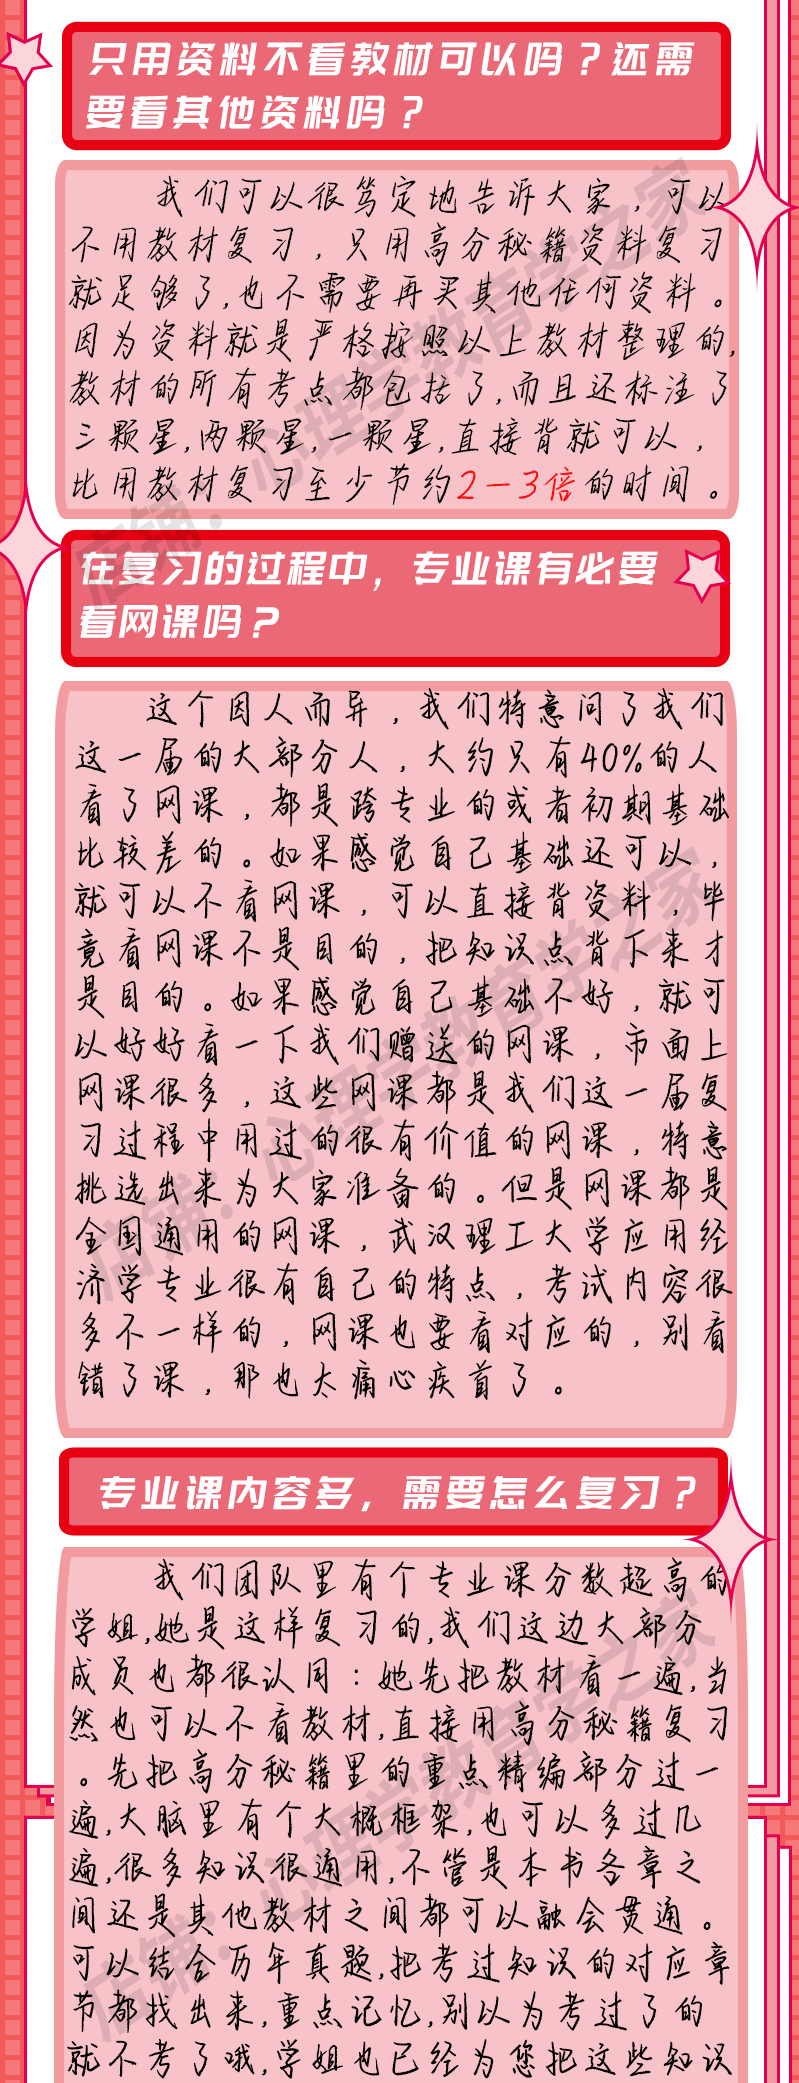 只用资料不看教材可以吗？还需
要看其他资料吗？
我们可以很笃定地告诉大家，可以
不用教材复习，只用高分秘籍资料复习
就足够了,也不需要再买其他任何资料。
因为资料就是严格按照以上教材整理的,
教材的所有考点都包括了,而且还标注了
三颗星,两颗星,一颗星,直接背就可以，
比用教材复习至少节约2-3倍的时间。
店铺：心理学教育学之家
在复习的过程中，专业课有必要
看网课吗？
这个因人而异，我们特意问了我们
这一届的大部分人，大约只有40%的人
看了网课，都是跨专业的或者初期基础
比较差的。如果感觉自己基础还可以，
就可以不看网课，可以直接背资料，毕
竟看网课不是目的，把知识点背下来才
是目的。如果感觉自己基础不好，就可
以好好看一下我们赠送的网课，市面上
网课很多，这些网课都是我们这一届复
习过程中用过的很有价值的网课，特意
挑选出来为大家准备的。但是网课都是
全国通用的网课，武汉理工大学应用经
济学专业很有自己的特点，考试内容很
多不一样的，网课也要看对应的，别看
错了课，那也太痛心疾首了。
店铺：心理学教育学之家
专业课内容多，需要怎么复习？
我们团队里有个专业课分数超高的
学姐,她是这样复习的,我们这边大部分
成员也都很认同：她先把教材看一遍,当
然也可以不看教材,直接用高分秘籍复习
。先把高分秘籍里的重点精编部分过一
遍,大脑里有个大概框架,也可以多过几
遍,很多知识很通用,不管是本书各章之
间还是其他教材之间都可以融会贯通。
可以结合历年真题,把考过知识的对应章
节都找出来,重点记忆,别以为考过了的
就不考了哦,学姐也已经为您把这些知识
店铺：心理学教育学之家